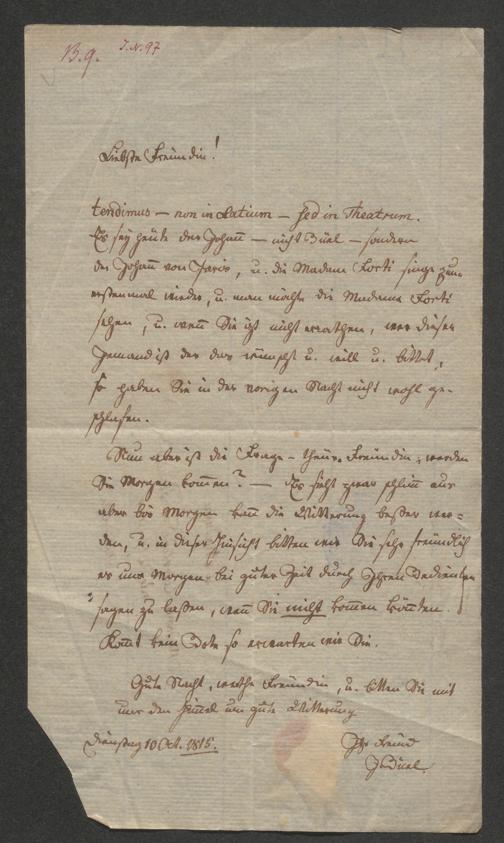 B. 9. I. N. 97
Liebste Freundin!
tendimus — non in Latium — sed in Theatrum.
Es sey heute der Johann — nicht Büel — sondern
der Johann von Paris, u. die Madam Forti singe zum
erstenmal wieder, u. man möchte die Madame Forti
sehen, u. wenn Sie izt nicht errathen, wer dieser
Jemand ist der das wünscht u. will u. bittet,
so haben Sie in der vorigen Nacht nicht wohl ge-
schlafen.
Nun aber ist die Frage – theure Freundin, werden
Sie Morgen kommen? — Es sieht zwar schlimm aus
aber bis Morgen kann die Witterung besser wer-
den, u. in dieser Hinsicht bitten wir Sie sehr freundlich
es uns Morgen bei guter Zeit durch Ihren Bedienten
sagen zu lassen, wenn Sie nicht kommen könnten.
Kommt kein Bote so erwarten wir Sie.
Gute Nacht, werthe Freundin, u. bitten Sie mit
uns den Himmel um gute Witterung
Dienstag 10 Oct. 1815.
Ihr Freund
JhBüel.